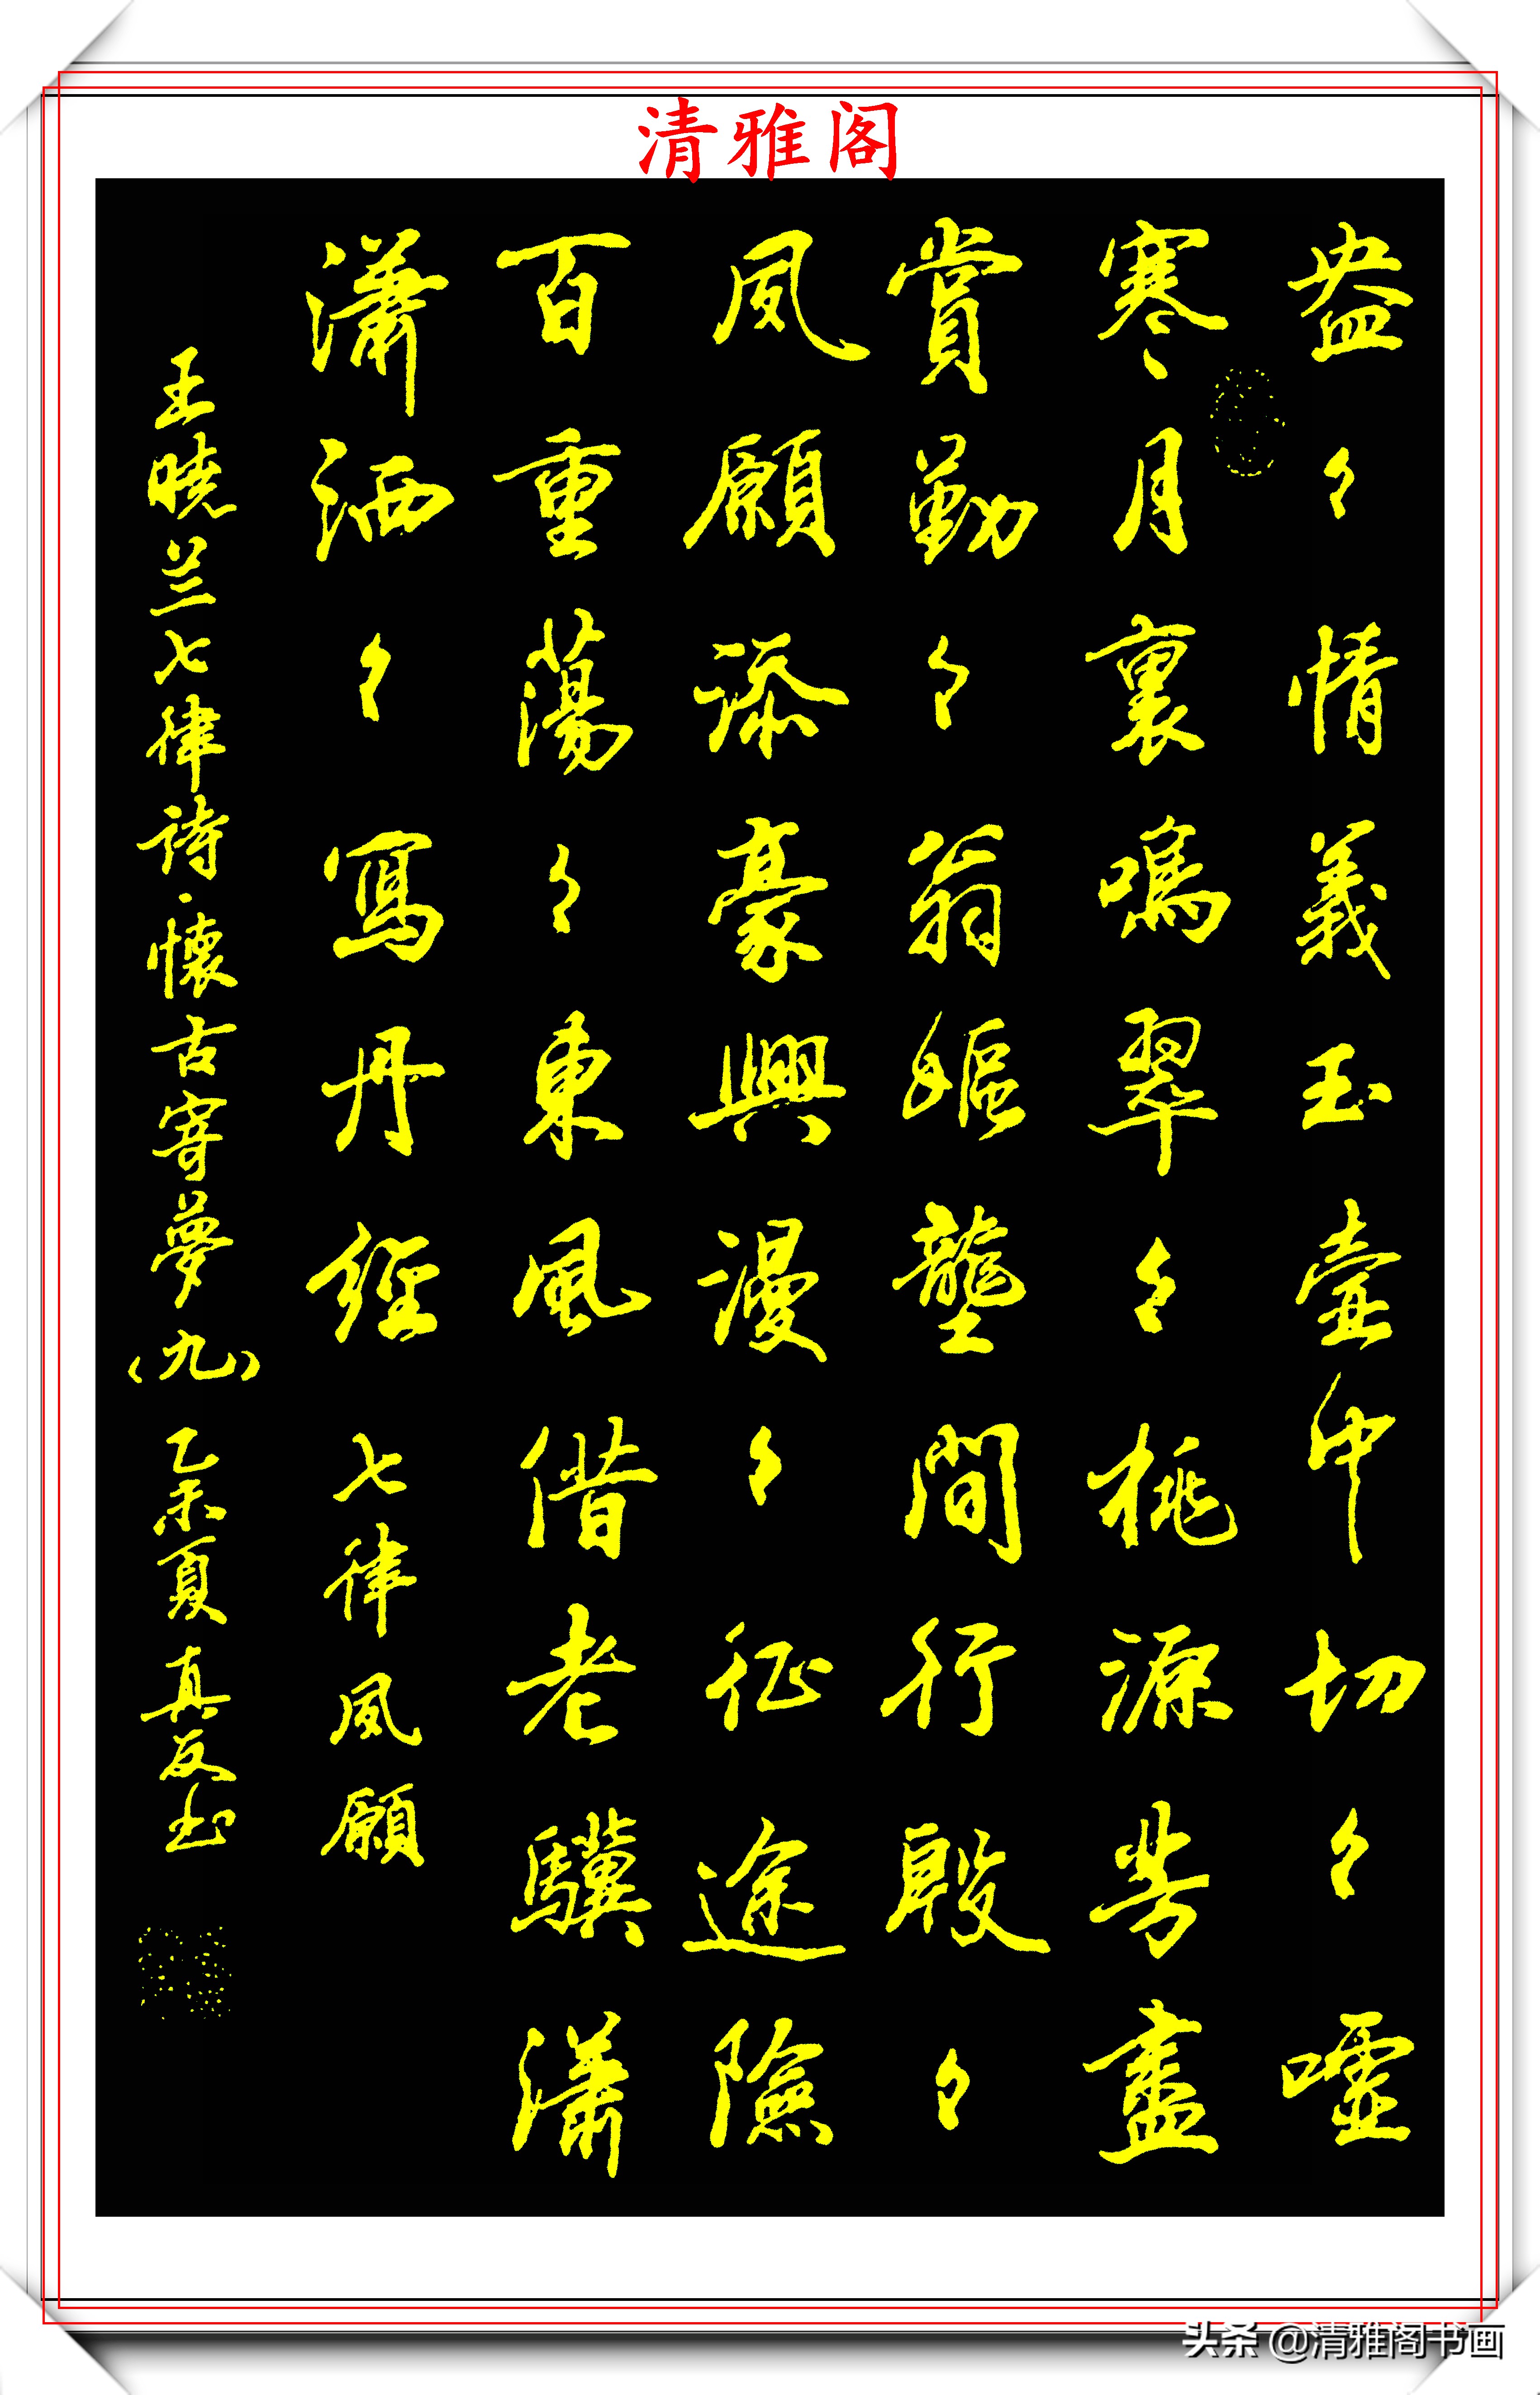 清雅阁
盎々情義玉壺中切々噓
寒月裏鳴翠々桃源芳盡
賞勤々翁嫗壟間行殷々
夙願添豪興漫々征途險
百重蕩々東風借老驥瀟
瀟洒々寫丹經 七律夙願
王晓兰七律诗·懷古寄夢（九） 乙未夏真友书
头条 @清雅阁书画